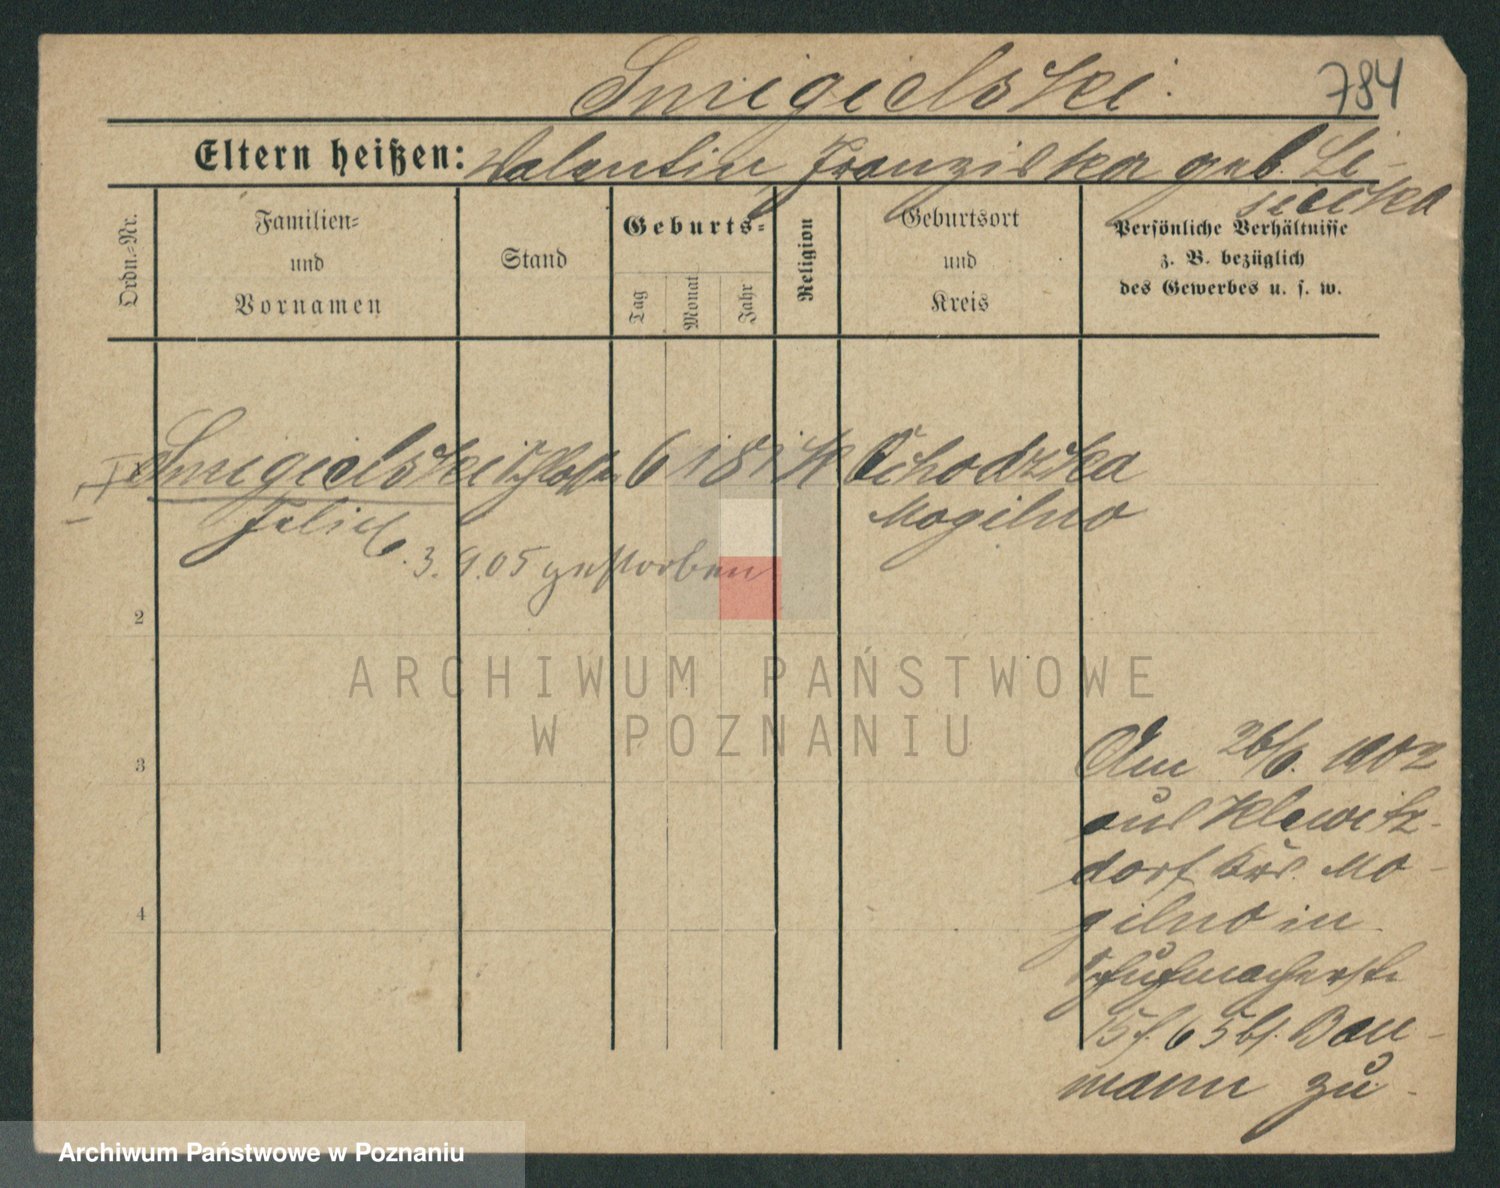 Smigielski. 784
Eltern heißen: Valentin, Franziska geb. Li-
siecka
Ordn.-Nr.
Familien-
und
Vornamen
Stand
Geburts-
Tag
Monat
Jahr
Religion
Geburtsort
und
Kreis
Persönliche Verhältnisse
z. B. bezüglich
des Gewerbes u. s. w.
Smigielski Schlosser 6 1 81 K Ochodzka
Felix Mogilno
3.9.05 gestorben
2
3
4
Am 26/6. 1902
aus Klewitz-
dorf Krs. Mo-
gilno in
Schuhmacherstr.
15 f. 65 bf. Bau-
mann zu
ARCHIWUM PAŃSTWOWE
W POZNANIU
Archiwum Państwowe w Poznaniu